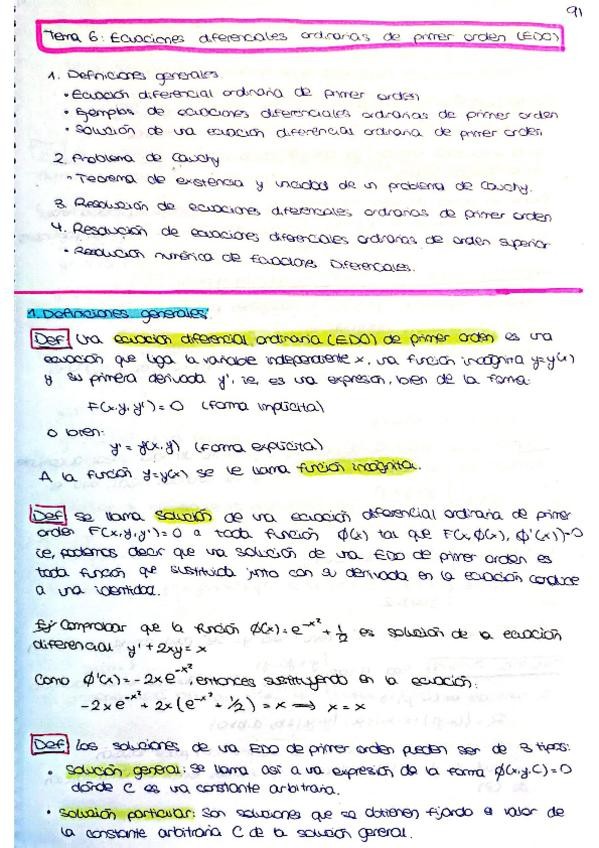 91
Tema 6: Ecuaciones diferenciales ordinarias de primer orden (EDO)
1. Definiciones generales.
• Ecuación diferencial ordinaria de primer orden
• Ejemplos de ecuaciones diferenciales ordinarias de primer orden
• Solución de una ecuación diferencial ordinaria de primer orden
2. Problema de Cauchy
• Teorema de existencia y unicidad de un problema de Cauchy.
3. Resolución de ecuaciones diferenciales ordinarias de primer orden
4. Resolución de ecuaciones diferenciales ordinarias de orden superior
• Resolución numérica de Ecuaciones Diferenciales.
1. Definiciones generales.
Def Una ecuación diferencial ordinaria (EDO) de primer orden es una
ecuación que liga la variable independiente x, una función incógnita y=y(x)
y su primera derivada y', i.e, es una expresión, bien de la forma:
F(x,y,y')=0 (forma implícita)
O bien:
y' = y(x,y) (forma explícita)
A la función y=y(x) se le llama función incógnita.
Def Se llama solución de una ecuación diferencial ordinaria de primer
orden F(x,y,y')=0 a toda función φ(x) tal que F(x,φ(x),φ'(x))=0
i.e, podemos decir que una solución de una EDO de primer orden es
toda función que sustituida junto con su derivada en la ecuación conduce
a una identidad.
Ej Comprobar que la función φ(x)=e^-x² + 1/2 es solución de la ecuación
diferencial y' + 2xy = x
Como φ'(x) = -2xe^-x², entonces sustituyendo en la ecuación:
-2xe^-x² + 2x(e^-x² + 1/2) = x ⟹ x = x
Def Las soluciones de una EDO de primer orden pueden ser de 3 tipos:
• Solución general: se llama así a una expresión de la forma φ(x,y,C)=0
donde C es una constante arbitraria.
• Solución particular: Son soluciones que se obtienen fijando el valor de
la constante arbitraria C de la solución general.